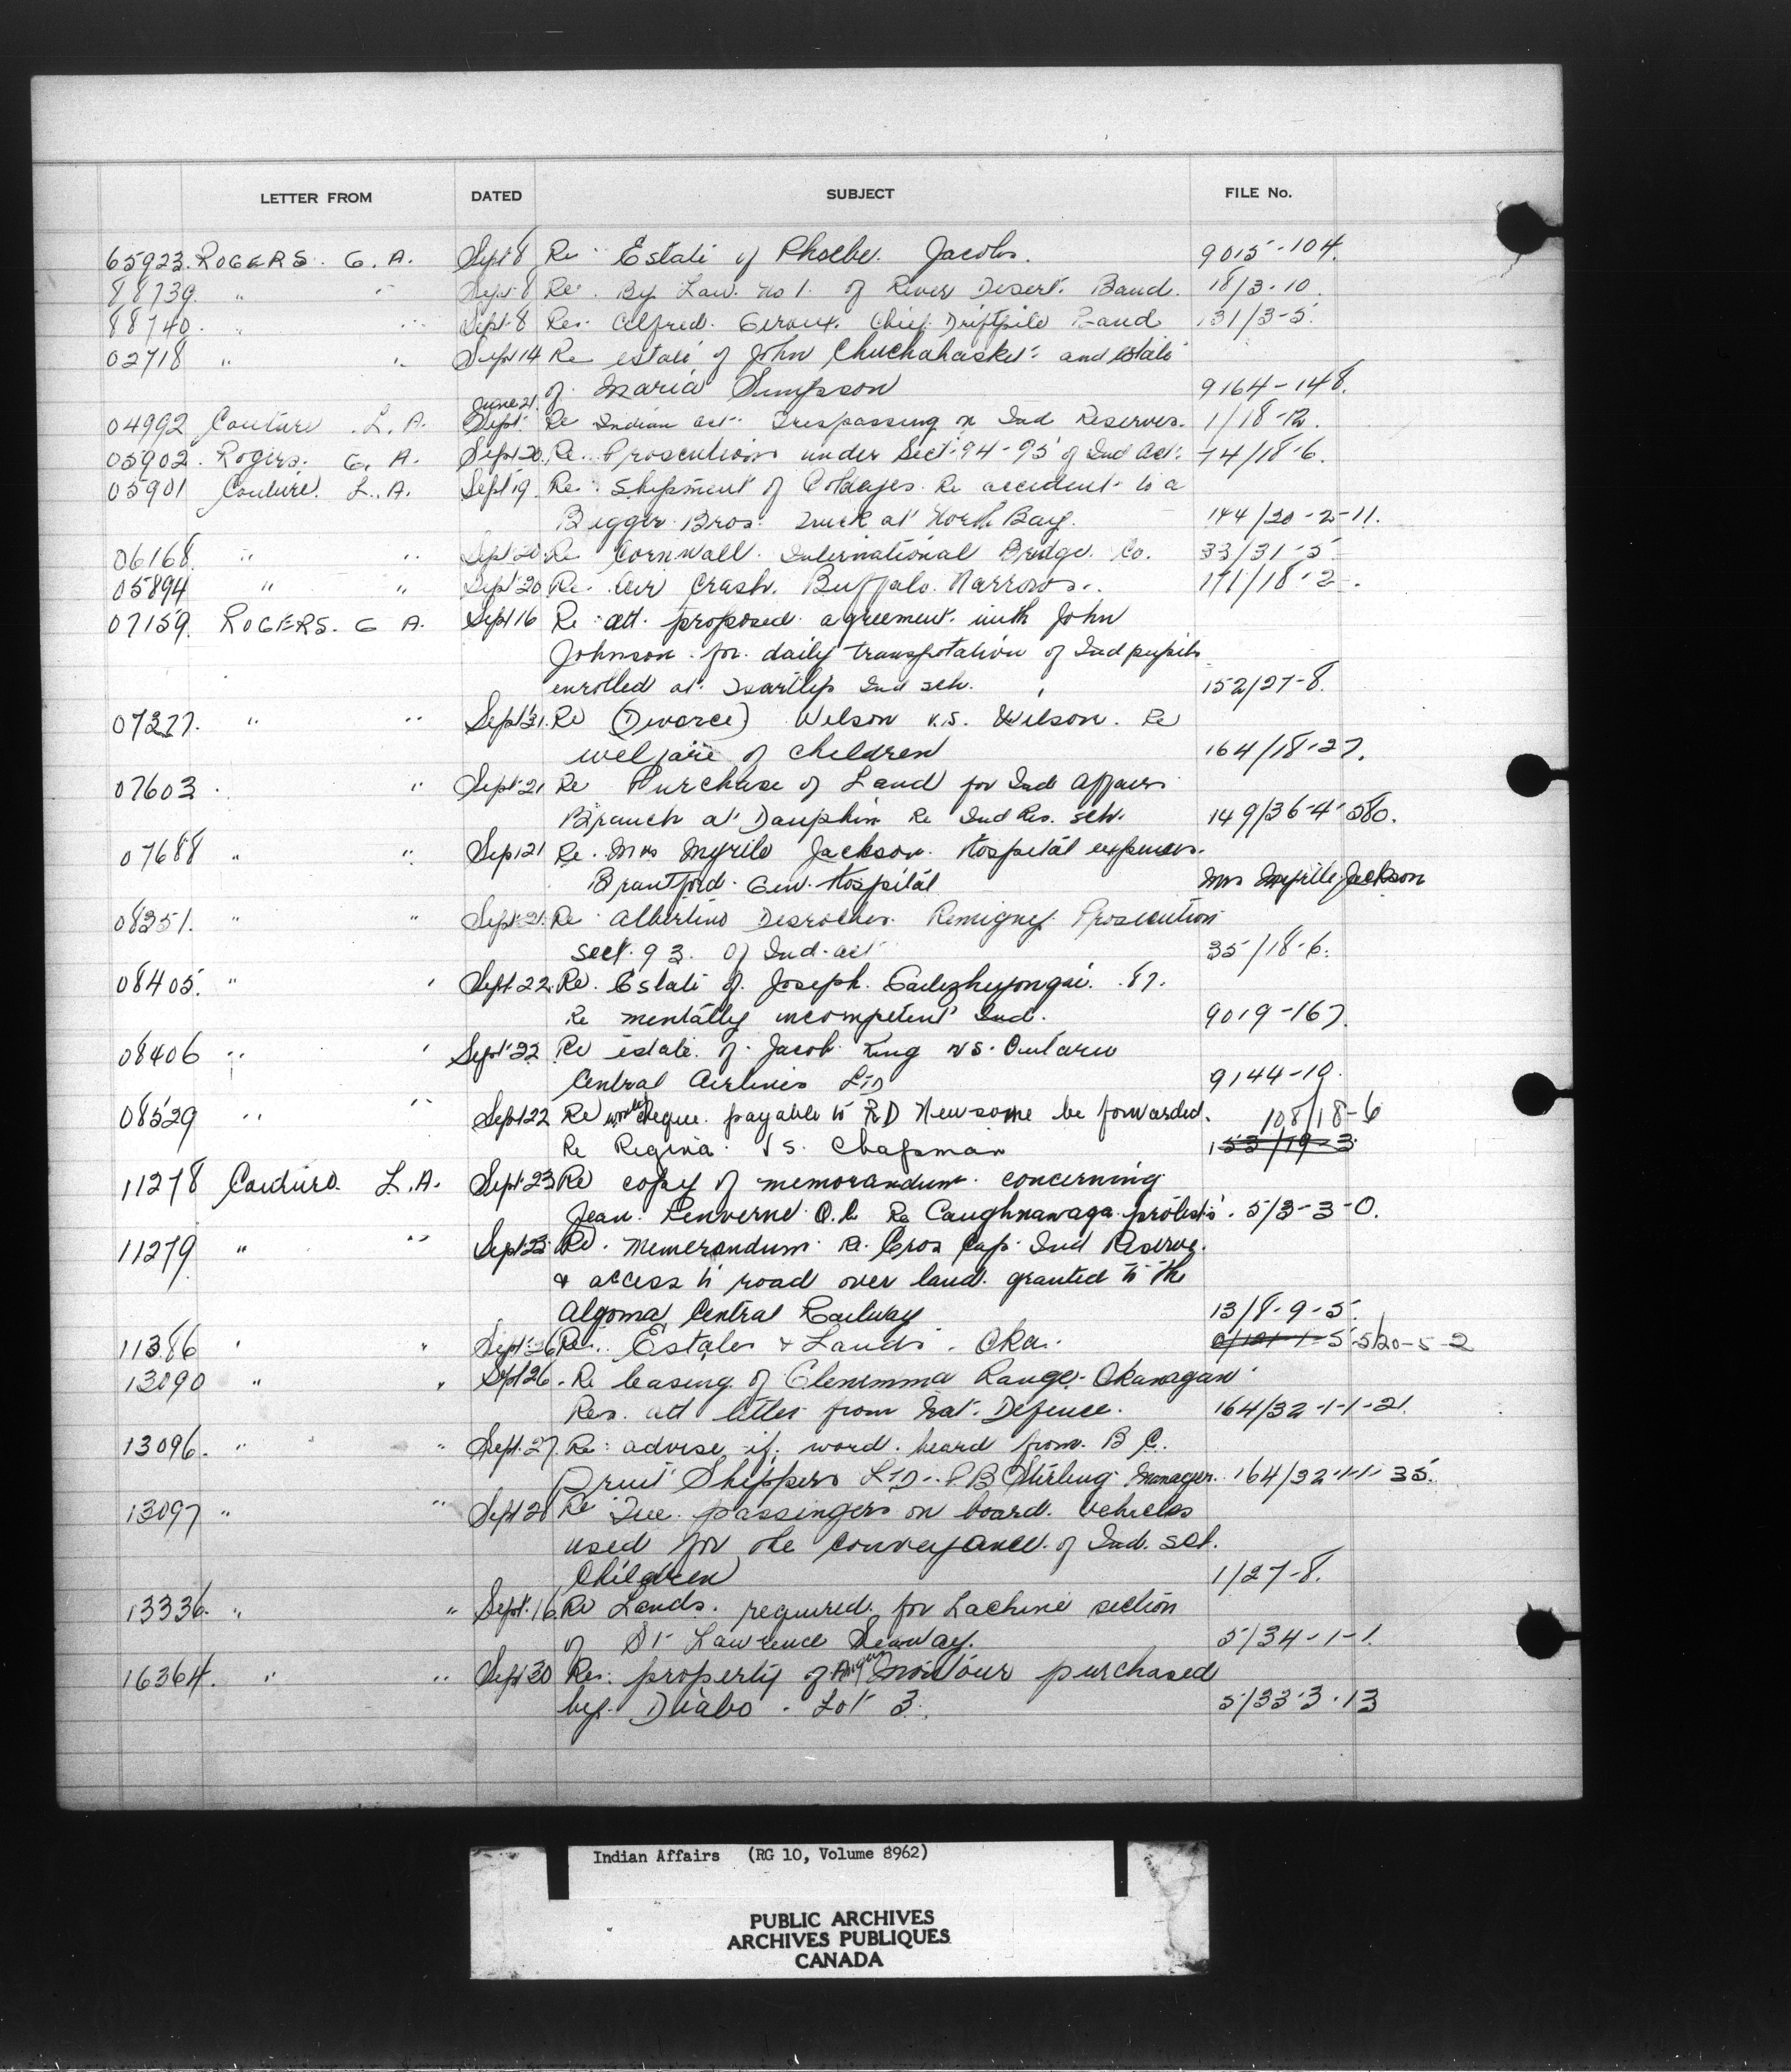 LETTER FROM DATED SUBJECT FILE No.
65923. ROGERS. G. A. Sept 8 Re Estate of Phoebe. Jacobs. 9015-104.
88739. " " Sept. 8 Re. By Law. No 1. of River Desert. Band. 18/3-10.
88740. " " Sept. 8 Re: Alfred. Giroux. Chief. Driftpile Band 131/3-5.
02718 " " Sept 14 Re estate of John Chuchahasket and estate
of. Maria Simpson 9164-148.
June 21.
04992 Couture .L. A. Sept. Re Indian act. Trespassing on Ind Reserves. 1/18-12.
05902. Rogers. G. A. Sept 20. Re. Prosecutions under Sect. 94-95 of Ind Act. 74/18-6.
05901 Couture. L. A. Sept 19. Re: Shipment of Re accident to a
Bros. Truck at North Bay. 144/20-2-11.
06168. " " Sept 20. Re Cornwall. International Bridge. Co. 33/31-5
05894 " " Sept 20 Re. Air Crash. Buffalo. Narrows.. 171/18-2.
07159. ROGERS. G A. Sept 16 Re: att. proposed. agreement. with John
Johnson. for. daily transpotation of Ind pupils
enrolled at. Ind sch. 152/27-8.
07327. " " Sept 21. Re (Divorce) Wilson v.s. Wilson. Re
welfare of children 164/18-27.
07603 . " Sept 21 Re Purchase of Land for Ind Affairs
Branch at Dauphin Re Ind Res. sch. 149/36-4-580.
07688 " " Sept 21 Re. Mrs Myrtle Jackson. Hospital expenses.
Brantford. Gen. Hospital Mrs Myrtle Jackson
08251. " " Sept. 21. Re. Desrocher. Remigny. Prosecution
sect. 93. Of Ind. act 35/18-6.
08405. " " Sept 22. Re. Estate of. Joseph. .87.
Re mentally incompetent Ind. 9019-167.
08406 " " Sept 22 Re estate. of. Jacob King vs. Ontario
Central Airlines LTD 9144-10.
08529 " " Sept 22 Re would cheque. payable to R D Newsome be forwarded. 108/18-6
Re Regina. VS. Chapman 153/19-3
11278 Couture. L.A. Sept 23 Re copy of memorandum. concerning
Jean. Q.C. Re Caughnawaga. protests. 5/3-3-0.
11279 " " Sept 23 Re. Memorandum. Re. Gros Cap. Ind Reserve.
& access to road over land. granted to the
Algoma Central Railway 13/8-9-5.
11386 " " Sept. 26 Re.. Estates & Lands. Oka. 5/20-5-2
13090 " " Sept 26. Re leasing. of Glenemma Range. Okanagan
Res. att letter from Nat. Defence. 164/32-1-1-21.
13096. " " Sept. 27. Re: advise if. word. heard from. B C.
Fruit Shippers LTD. P.B Stirling Manager. 164/32-1-1-35.
13097 " " Sept 28 Re passengers on board. vehicles
used for the conveyance. of Ind. sch.
Children 1/27-8.
13336. " " Sept. 16 Re Lands. required. for Lachine section
of St Lawrence Seaway. 5/34-1-1.
16364. " " Sept 30 Re: property of Angus Montour purchased
by. Diabo. Lot 3. 5/33-3-13
Indian Affairs (RG 10, Volume 8962)
PUBLIC ARCHIVES
ARCHIVES PUBLIQUES
CANADA